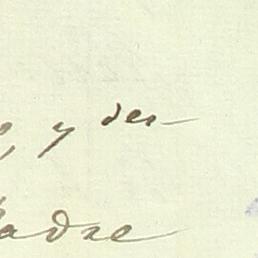 , y des-
adre